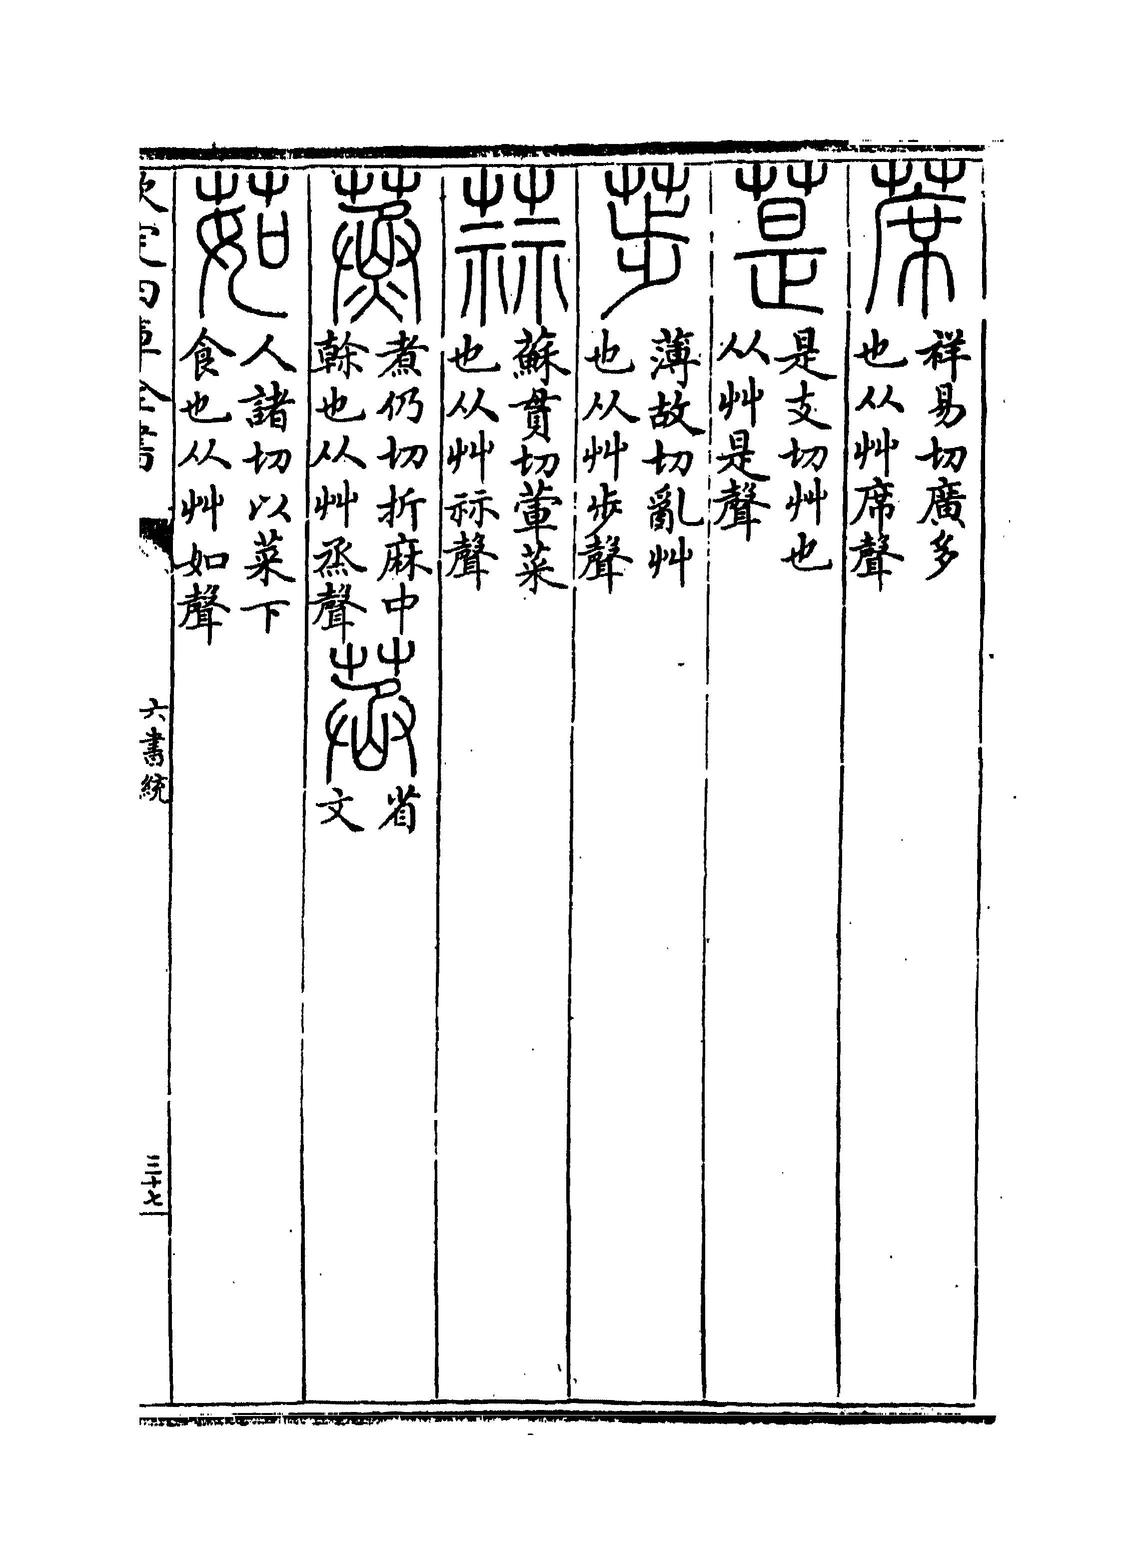 蓆 祥易切廣多
也从艸席聲
萛 是支切艸也
从艸是聲
荹 薄故切亂艸
也从艸步聲
蒜 蘇貫切葷菜
也从艸祘聲
蒸 煮仍切折麻中
榦也从艸烝聲
𦯶 省
文
茹 人諸切以菜下
食也从艸如聲
欽定四庫全書
六書統
三十七